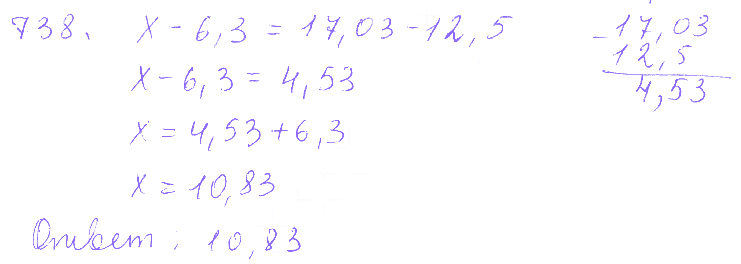 738. x - 6,3 = 17,03 - 12,5
x - 6,3 = 4,53
x = 4,53 + 6,3
x = 10,83
Ответ: 10,83
- 17,03
12,5
4,53